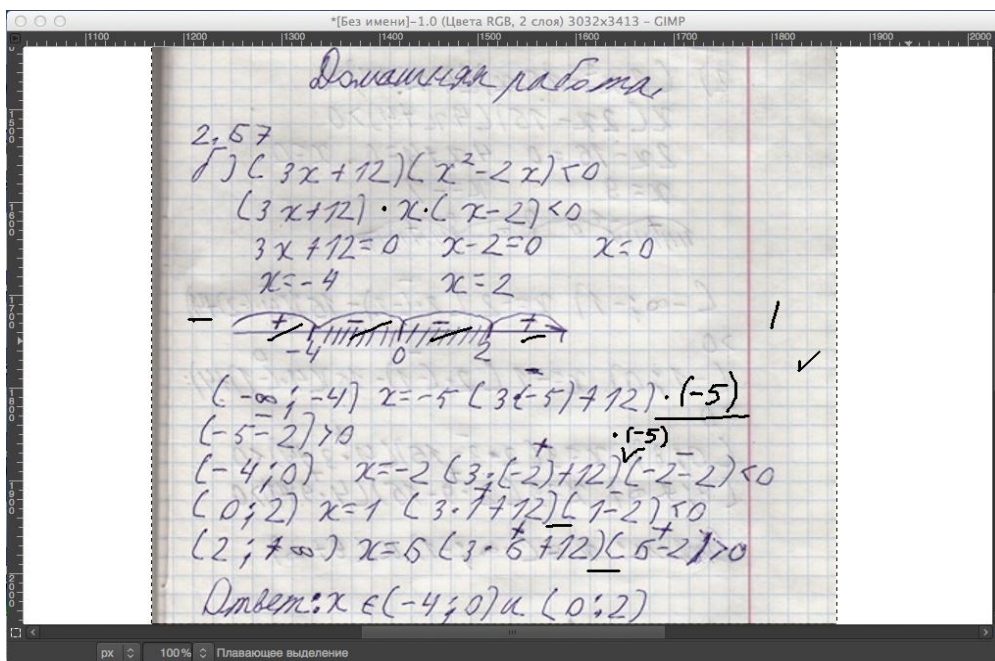 *[Без имени]-1.0 (Цвета RGB, 2 слоя) 3032x3413 – GIMP
1100 1200 1300 1400 1500 1600 1700 1800 1900 2000
1500
1600
1700
1800
1900
2000
Домашняя работа.
2.57
б) (3x+12)(x²-2x)<0
(3x+12)·x·(x-2)<0
3x+12=0 x-2=0 x=0
x=-4 x=2
+ - - +
-4 0 2
(-∞;-4) x=-5 (3(-5)+12)·(-5)
(-5-2)>0
·(-5)
(-4;0) x=-2 (3·(-2)+12)(-2-2)<0
(0;2) x=1 (3·1+12)(1-2)<0
(2;+∞) x=5 (3·5+12)(5-2)>0
Ответ: x∈(-4;0)и(0;2)
px 100% Плавающее выделение